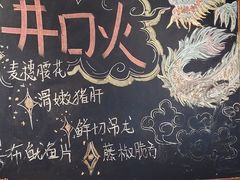 井口火
麦穗腰花
滑嫩猪肝
鲜切吊龙
布鱿鱼片
藤椒脆